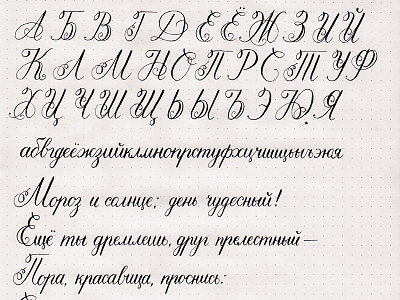 А Б В Г Д Е Ё Ж З И Й
К Л М Н О П Р С Т У Ф
Х Ц Ч Ш Щ Ь Ы Ъ Э Ю Я
абвгдеёжзийклмнопрстуфхцчшщьыъэюя
Мороз и солнце; день чудесный!
Ещё ты дремлешь, друг прелестный —
Пора, красавица, проснись: